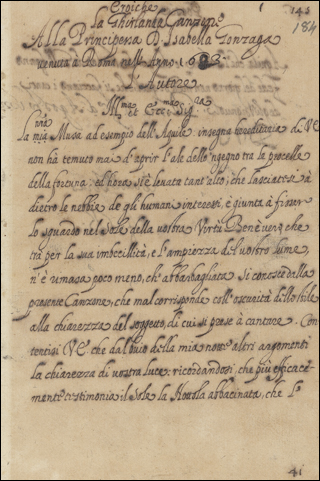 Eroiche
143
184
La Ghirlanda Canzone
Alla Principessa D. Isabella Gonzaga
venuta a Roma nell' Anno 1623
L'Autore
Ill.ma et Ecc.ma Sig.ra
La mia Musa ad esempio dell'Aquile insegna hereditaria di V.E.
non hà temuto mai d'aprir l'ale dell'ingegno tra le procelle
della fortuna, ed hora s'è levata tant'alto, che lasciatesi à
dietro le nebbie de gli humani interessi, e giunta à fissar
lo sguardo nel sole della vostra Virtù Ben è vero che
trà per la sua imbecillità, e l'ampiezza di vostro lume,
n'è rimasa poco meno, che abbarbagliata. Si conosce dalla
presente Canzone, che mal corrisponde coll'oscurità dello stile
alla chiarezza del soggetto, di cui si prese à cantare. Con
tentisi V.E. che dal buio della mia notte altri argomenti
la chiarezza di vostra luce; ricordandosi, che più efficace=
mente testimonia il sole la Nottola abbacinata, che l'
41